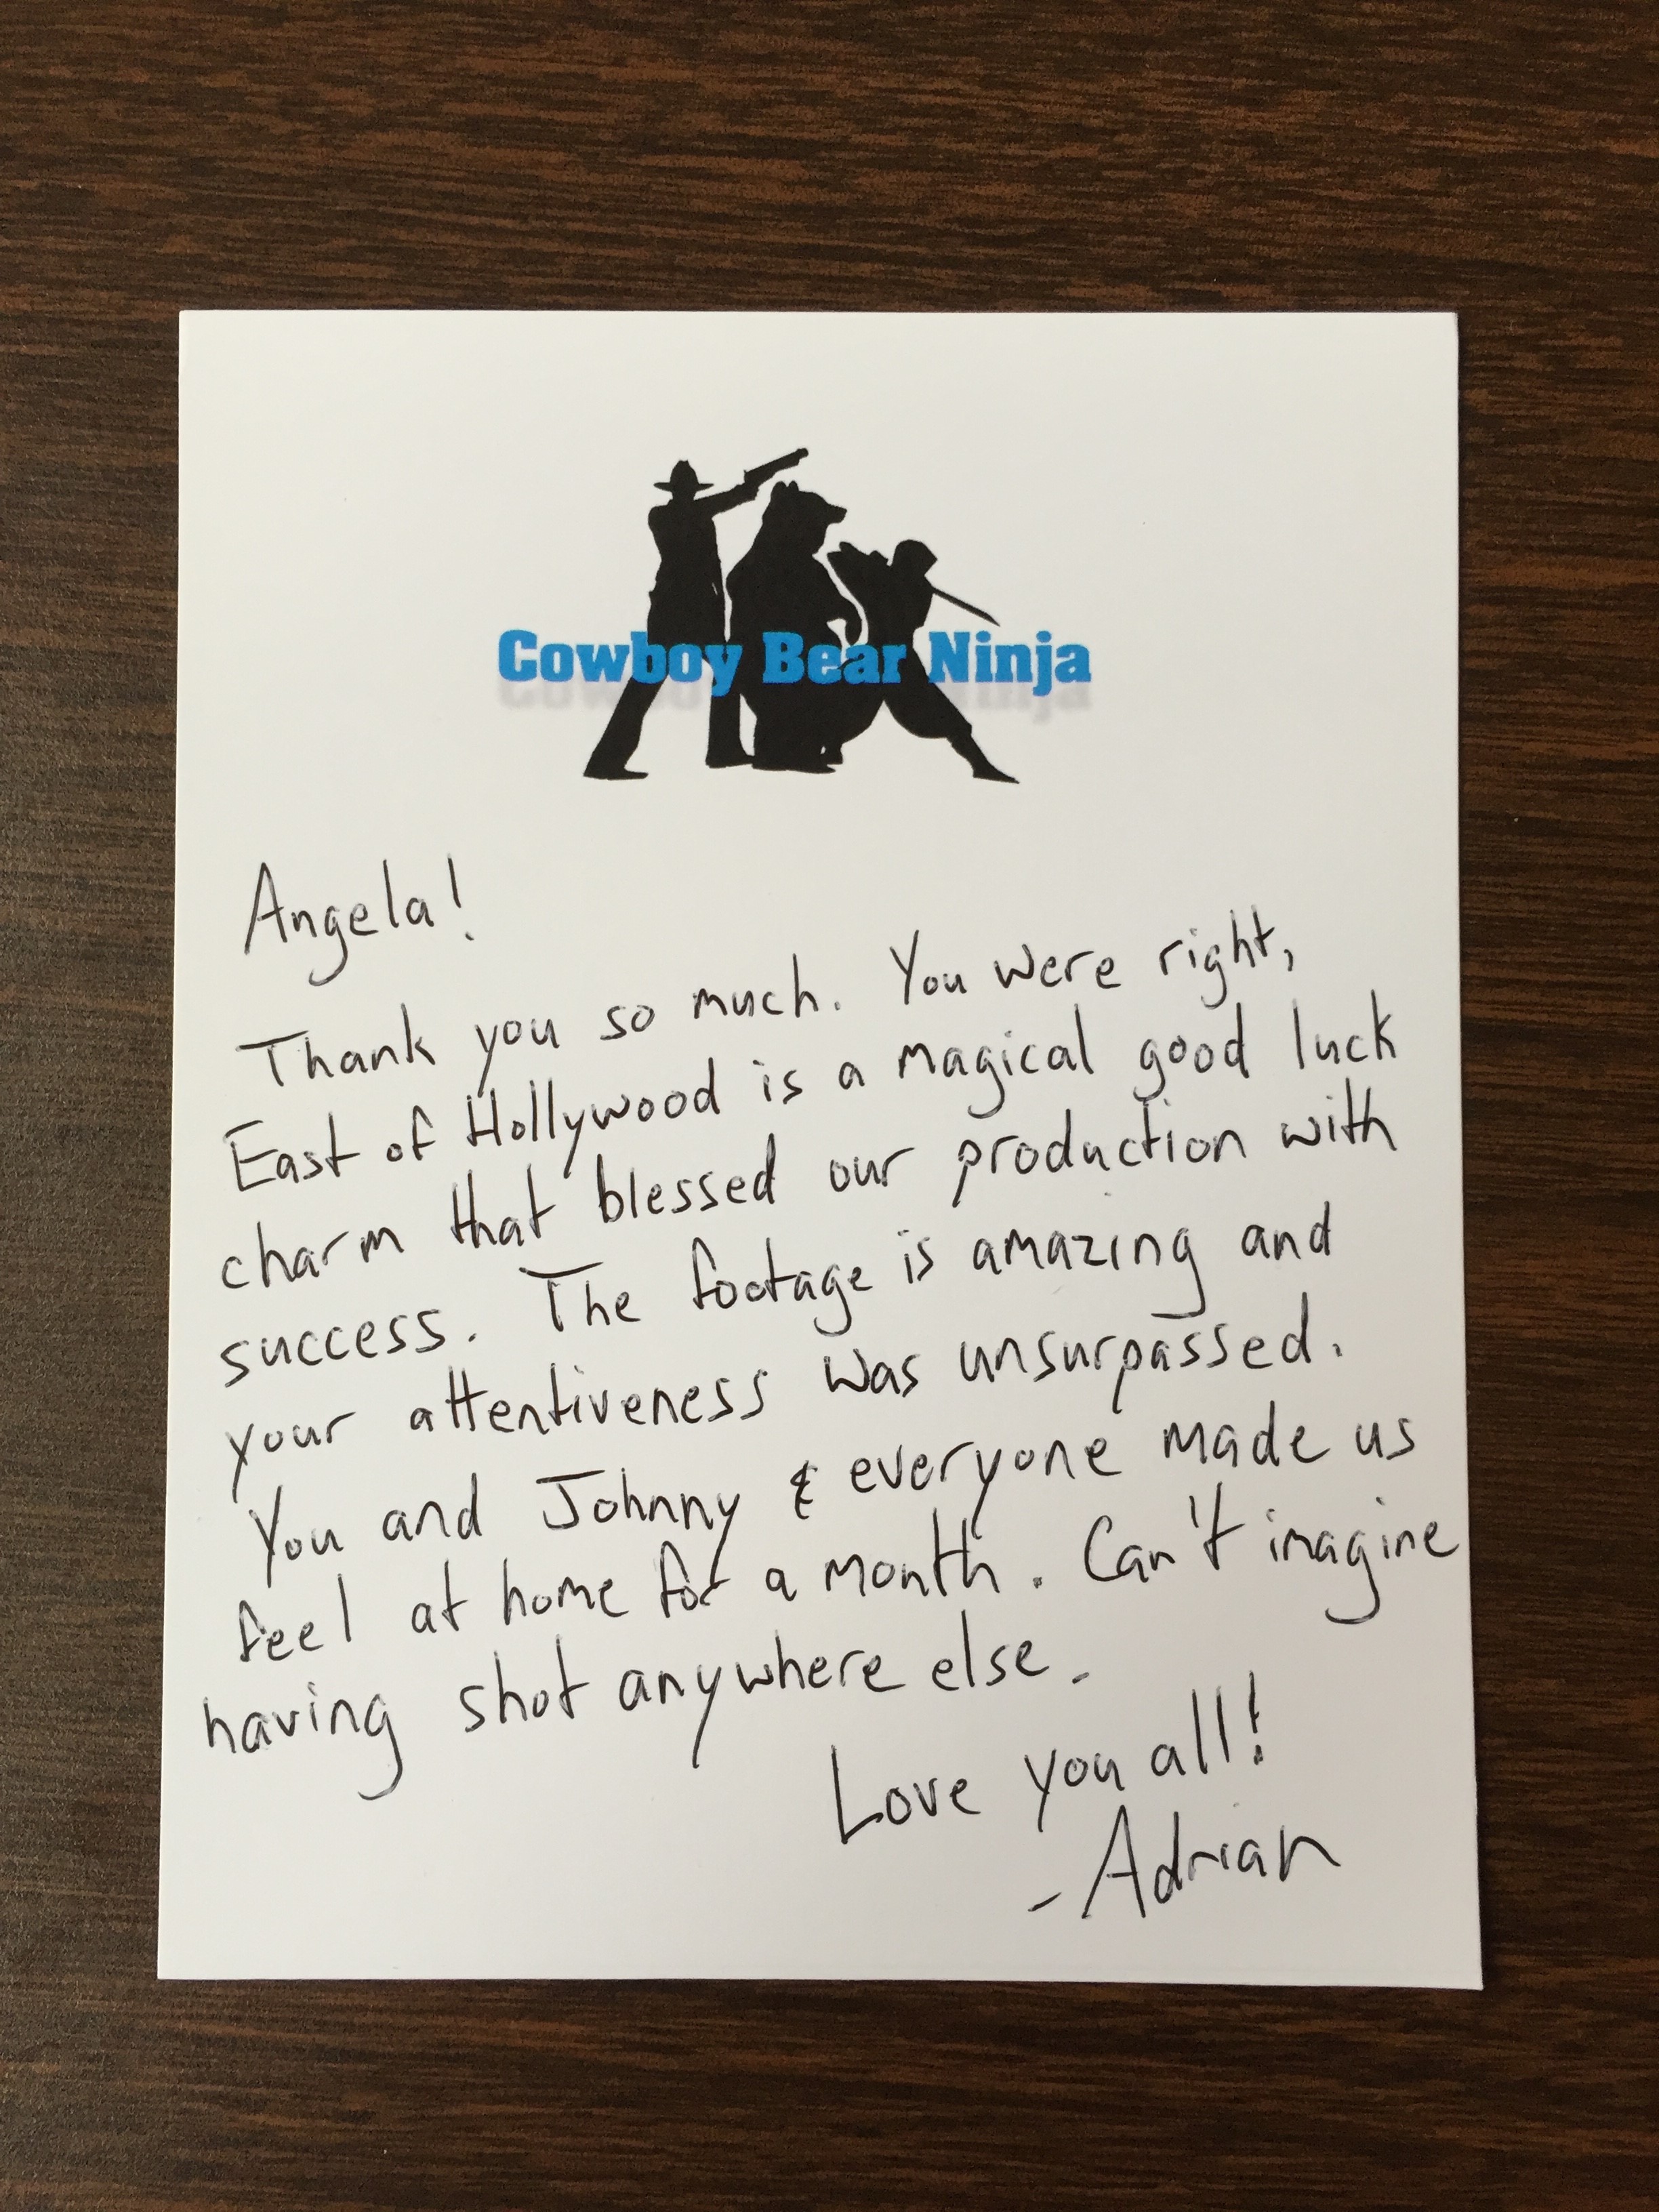 Cowboy Bear Ninja
Angela!
Thank you so much. You were right,
East of Hollywood is a magical good luck
charm that blessed our production with
success. The footage is amazing and
your attentiveness was unsurpassed.
You and Johnny & everyone made us
feel at home for a month. Can't imagine
having shot anywhere else.
Love you all!
-Adrian